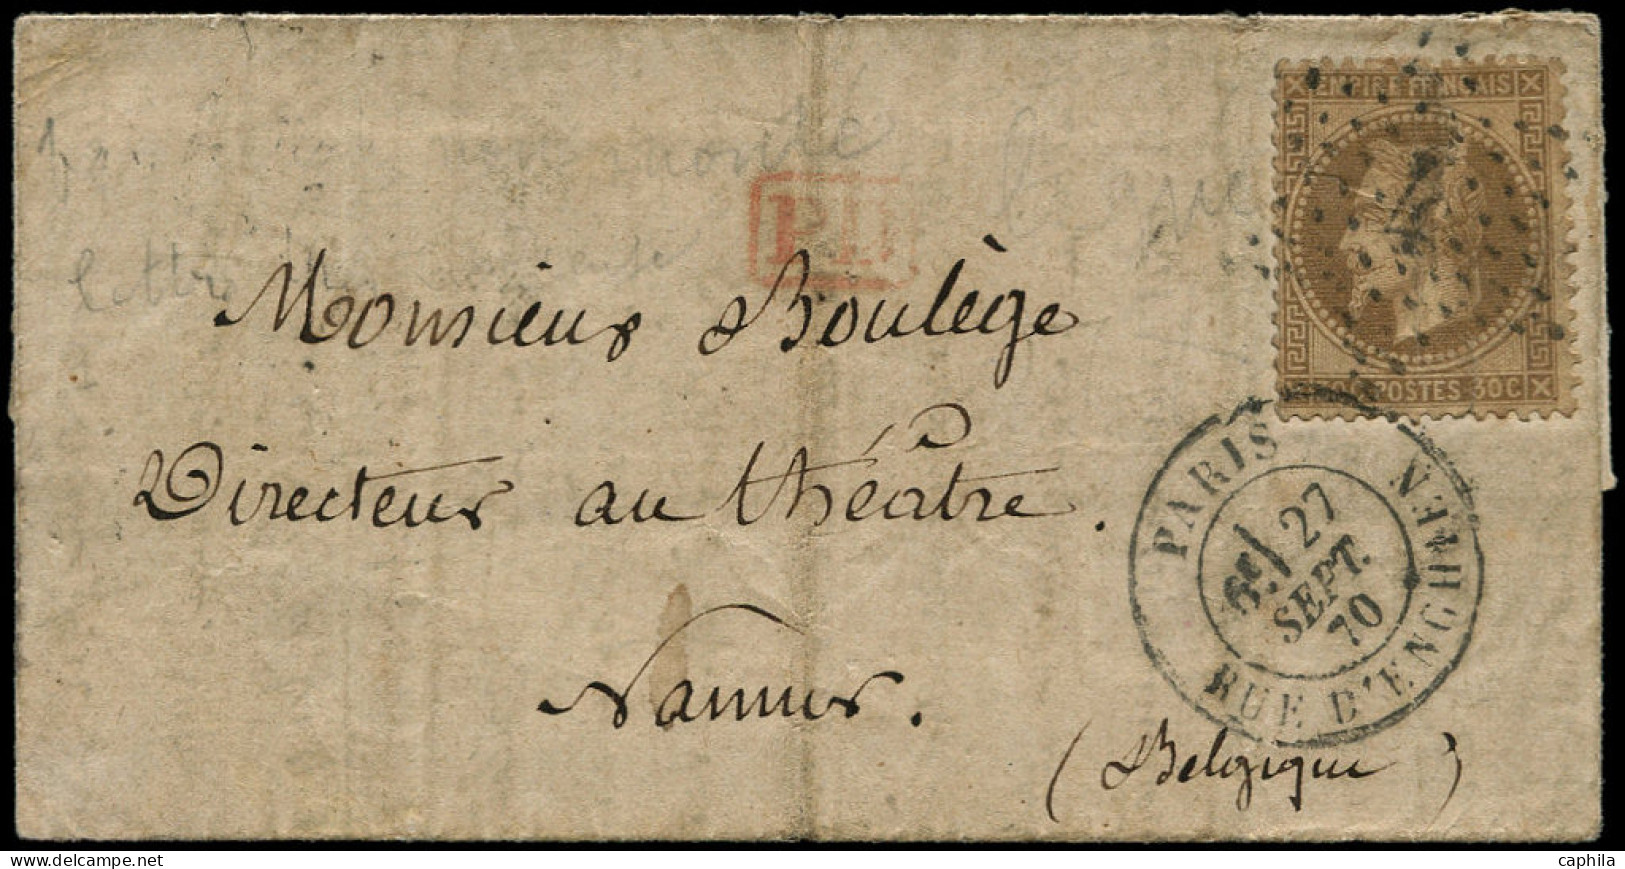 EMPIRE FRANÇAIS
30C POSTES 30C
P.D.
monté
lettre
Monsieur Boulège
Directeur au théâtre.
Namur.
(Belgique)
PARIS
6E/ 27
SEPT.
70
RUE D'ENGHIEN
delcampe.net
caphila